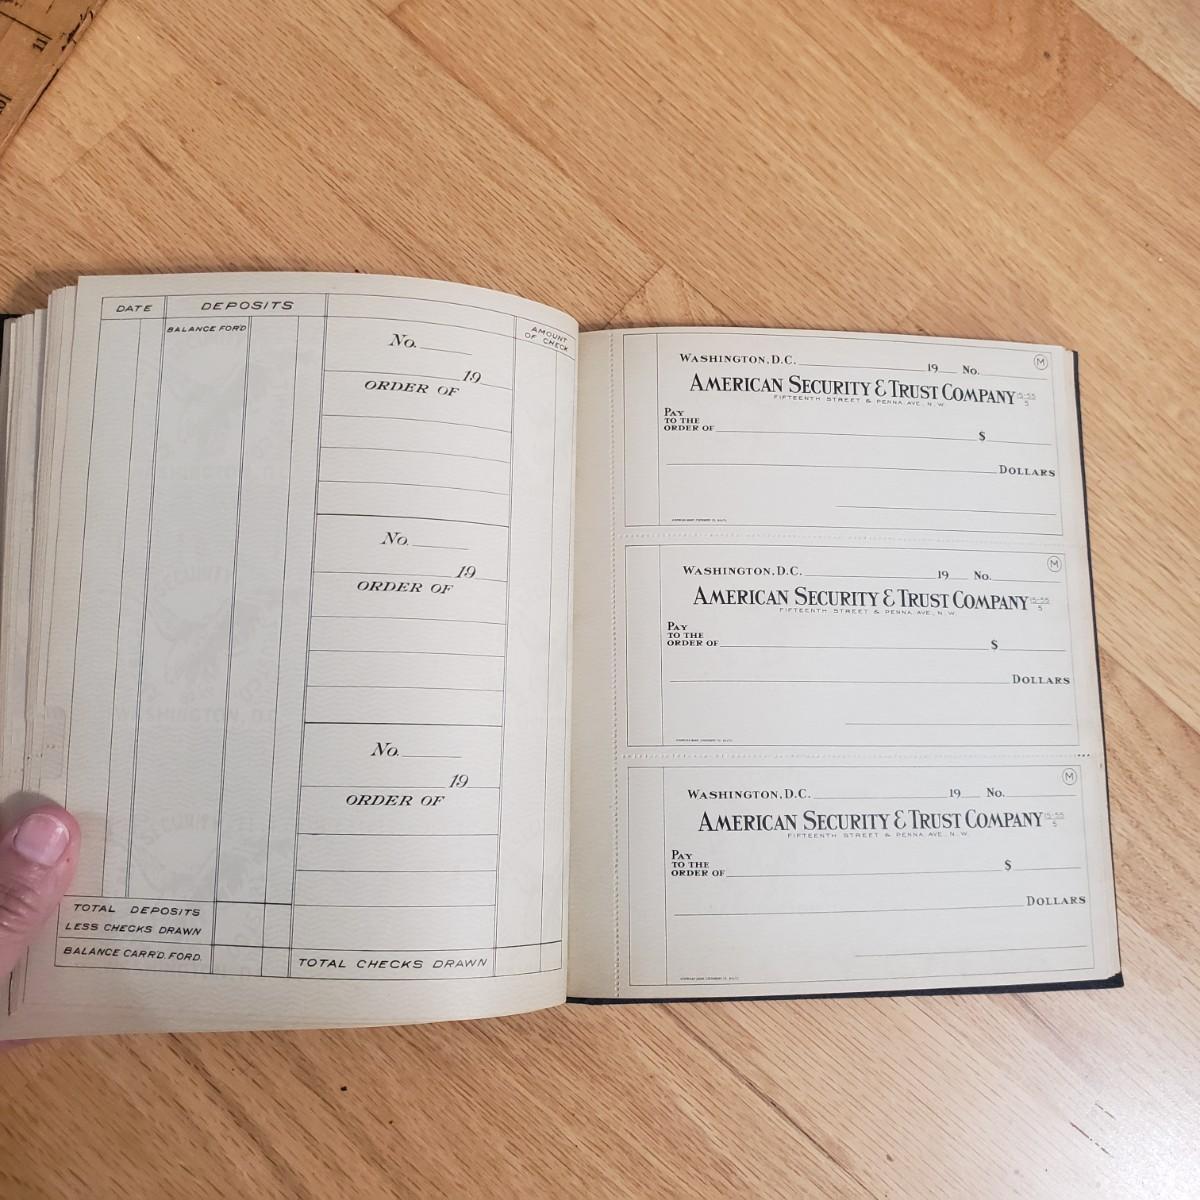 11
10
DATE DEPOSITS AMOUNT OF CHECK
BALANCE FOR'D
No.
19
ORDER OF
No.
19
ORDER OF
No.
19
ORDER OF
TOTAL DEPOSITS
LESS CHECKS DRAWN
BALANCE CARR'D. FORD.
TOTAL CHECKS DRAWN
M
WASHINGTON, D.C. 19 No.
AMERICAN SECURITY & TRUST COMPANY 15-55
5
FIFTEENTH STREET & PENNA. AVE., N.W.
PAY
TO THE
ORDER OF $
DOLLARS
M
WASHINGTON, D.C. 19 No.
AMERICAN SECURITY & TRUST COMPANY 15-55
5
FIFTEENTH STREET & PENNA. AVE., N.W.
PAY
TO THE
ORDER OF $
DOLLARS
M
WASHINGTON, D.C. 19 No.
AMERICAN SECURITY & TRUST COMPANY 15-55
5
FIFTEENTH STREET & PENNA. AVE., N.W.
PAY
TO THE
ORDER OF $
DOLLARS